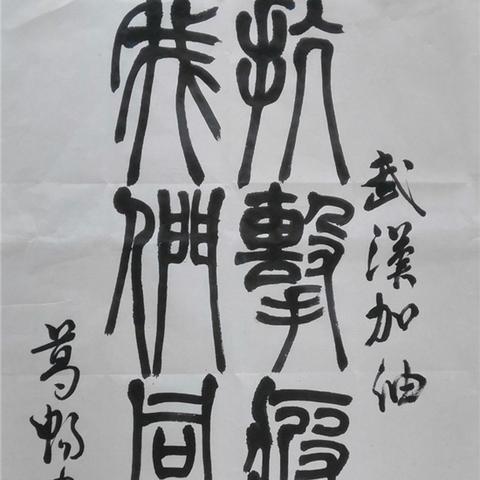 武漢加油
抗擊疫
我們同
葛暢